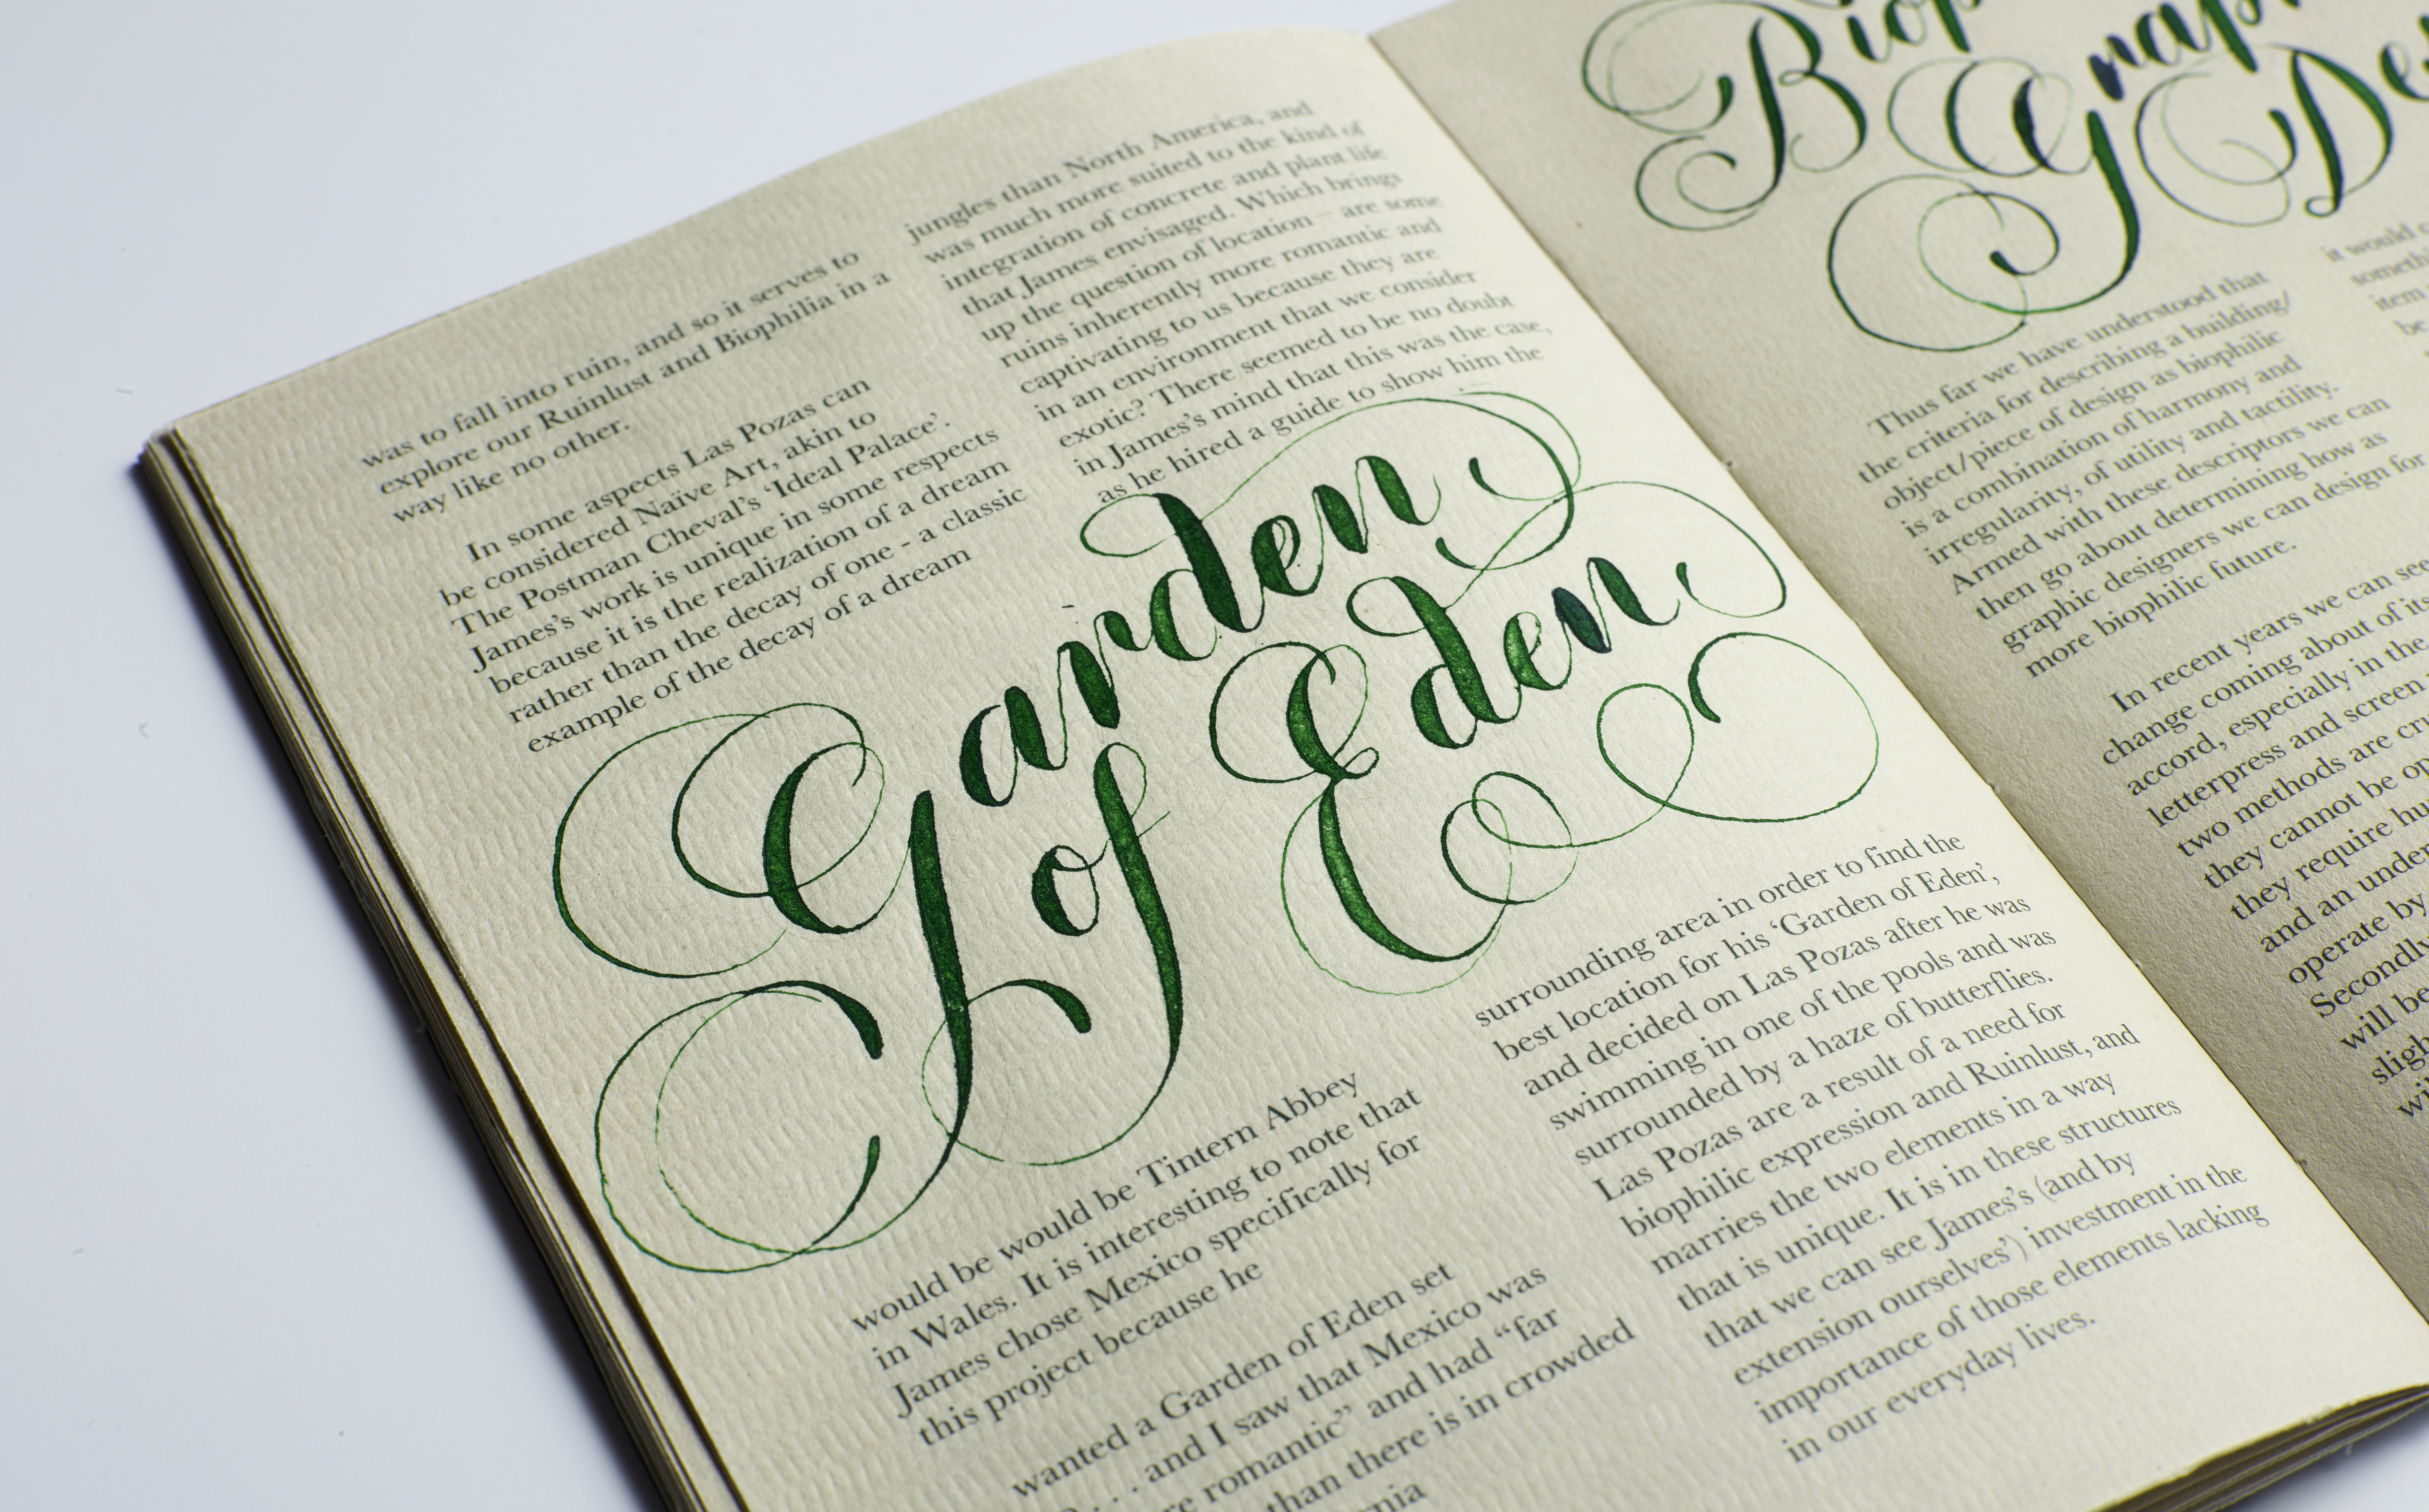 was to fall into ruin, and so it serves to
explore our Ruinlust and Biophilia in a
way like no other.
In some aspects Las Pozas can
be considered Naïve Art, akin to
The Postman Cheval's 'Ideal Palace'.
James's work is unique in some respects
because it is the realization of a dream
rather than the decay of one - a classic
example of the decay of a dream
jungles than North America, and
was much more suited to the kind of
integration of concrete and plant life
that James envisaged. Which brings
up the question of location – are some
ruins inherently more romantic and
captivating to us because they are
in an environment that we consider
exotic? There seemed to be no doubt
in James's mind that this was the case,
as he hired a guide to show him the
Garden
of Eden
would be would be Tintern Abbey
in Wales. It is interesting to note that
James chose Mexico specifically for
this project because he
wanted a Garden of Eden set
. . . and I saw that Mexico was
romantic” and had “far
than there is in crowded
surrounding area in order to find the
best location for his ‘Garden of Eden’,
and decided on Las Pozas after he was
swimming in one of the pools and was
surrounded by a haze of butterflies.
Las Pozas are a result of a need for
biophilic expression and Ruinlust, and
marries the two elements in a way
that is unique. It is in these structures
that we can see James's (and by
extension ourselves') investment in the
importance of those elements lacking
in our everyday lives.
Thus far we have understood that
the criteria for describing a building/
object/piece of design as biophilic
is a combination of harmony and
irregularity, of utility and tactility.
Armed with these descriptors we can
then go about determining how as
graphic designers we can design for
more biophilic future.
In recent years we can see
change coming about of its
accord, especially in the
letterpress and screen
two methods are
they cannot be
they require
and an
operate by
Secondly
will be
it would
item
be